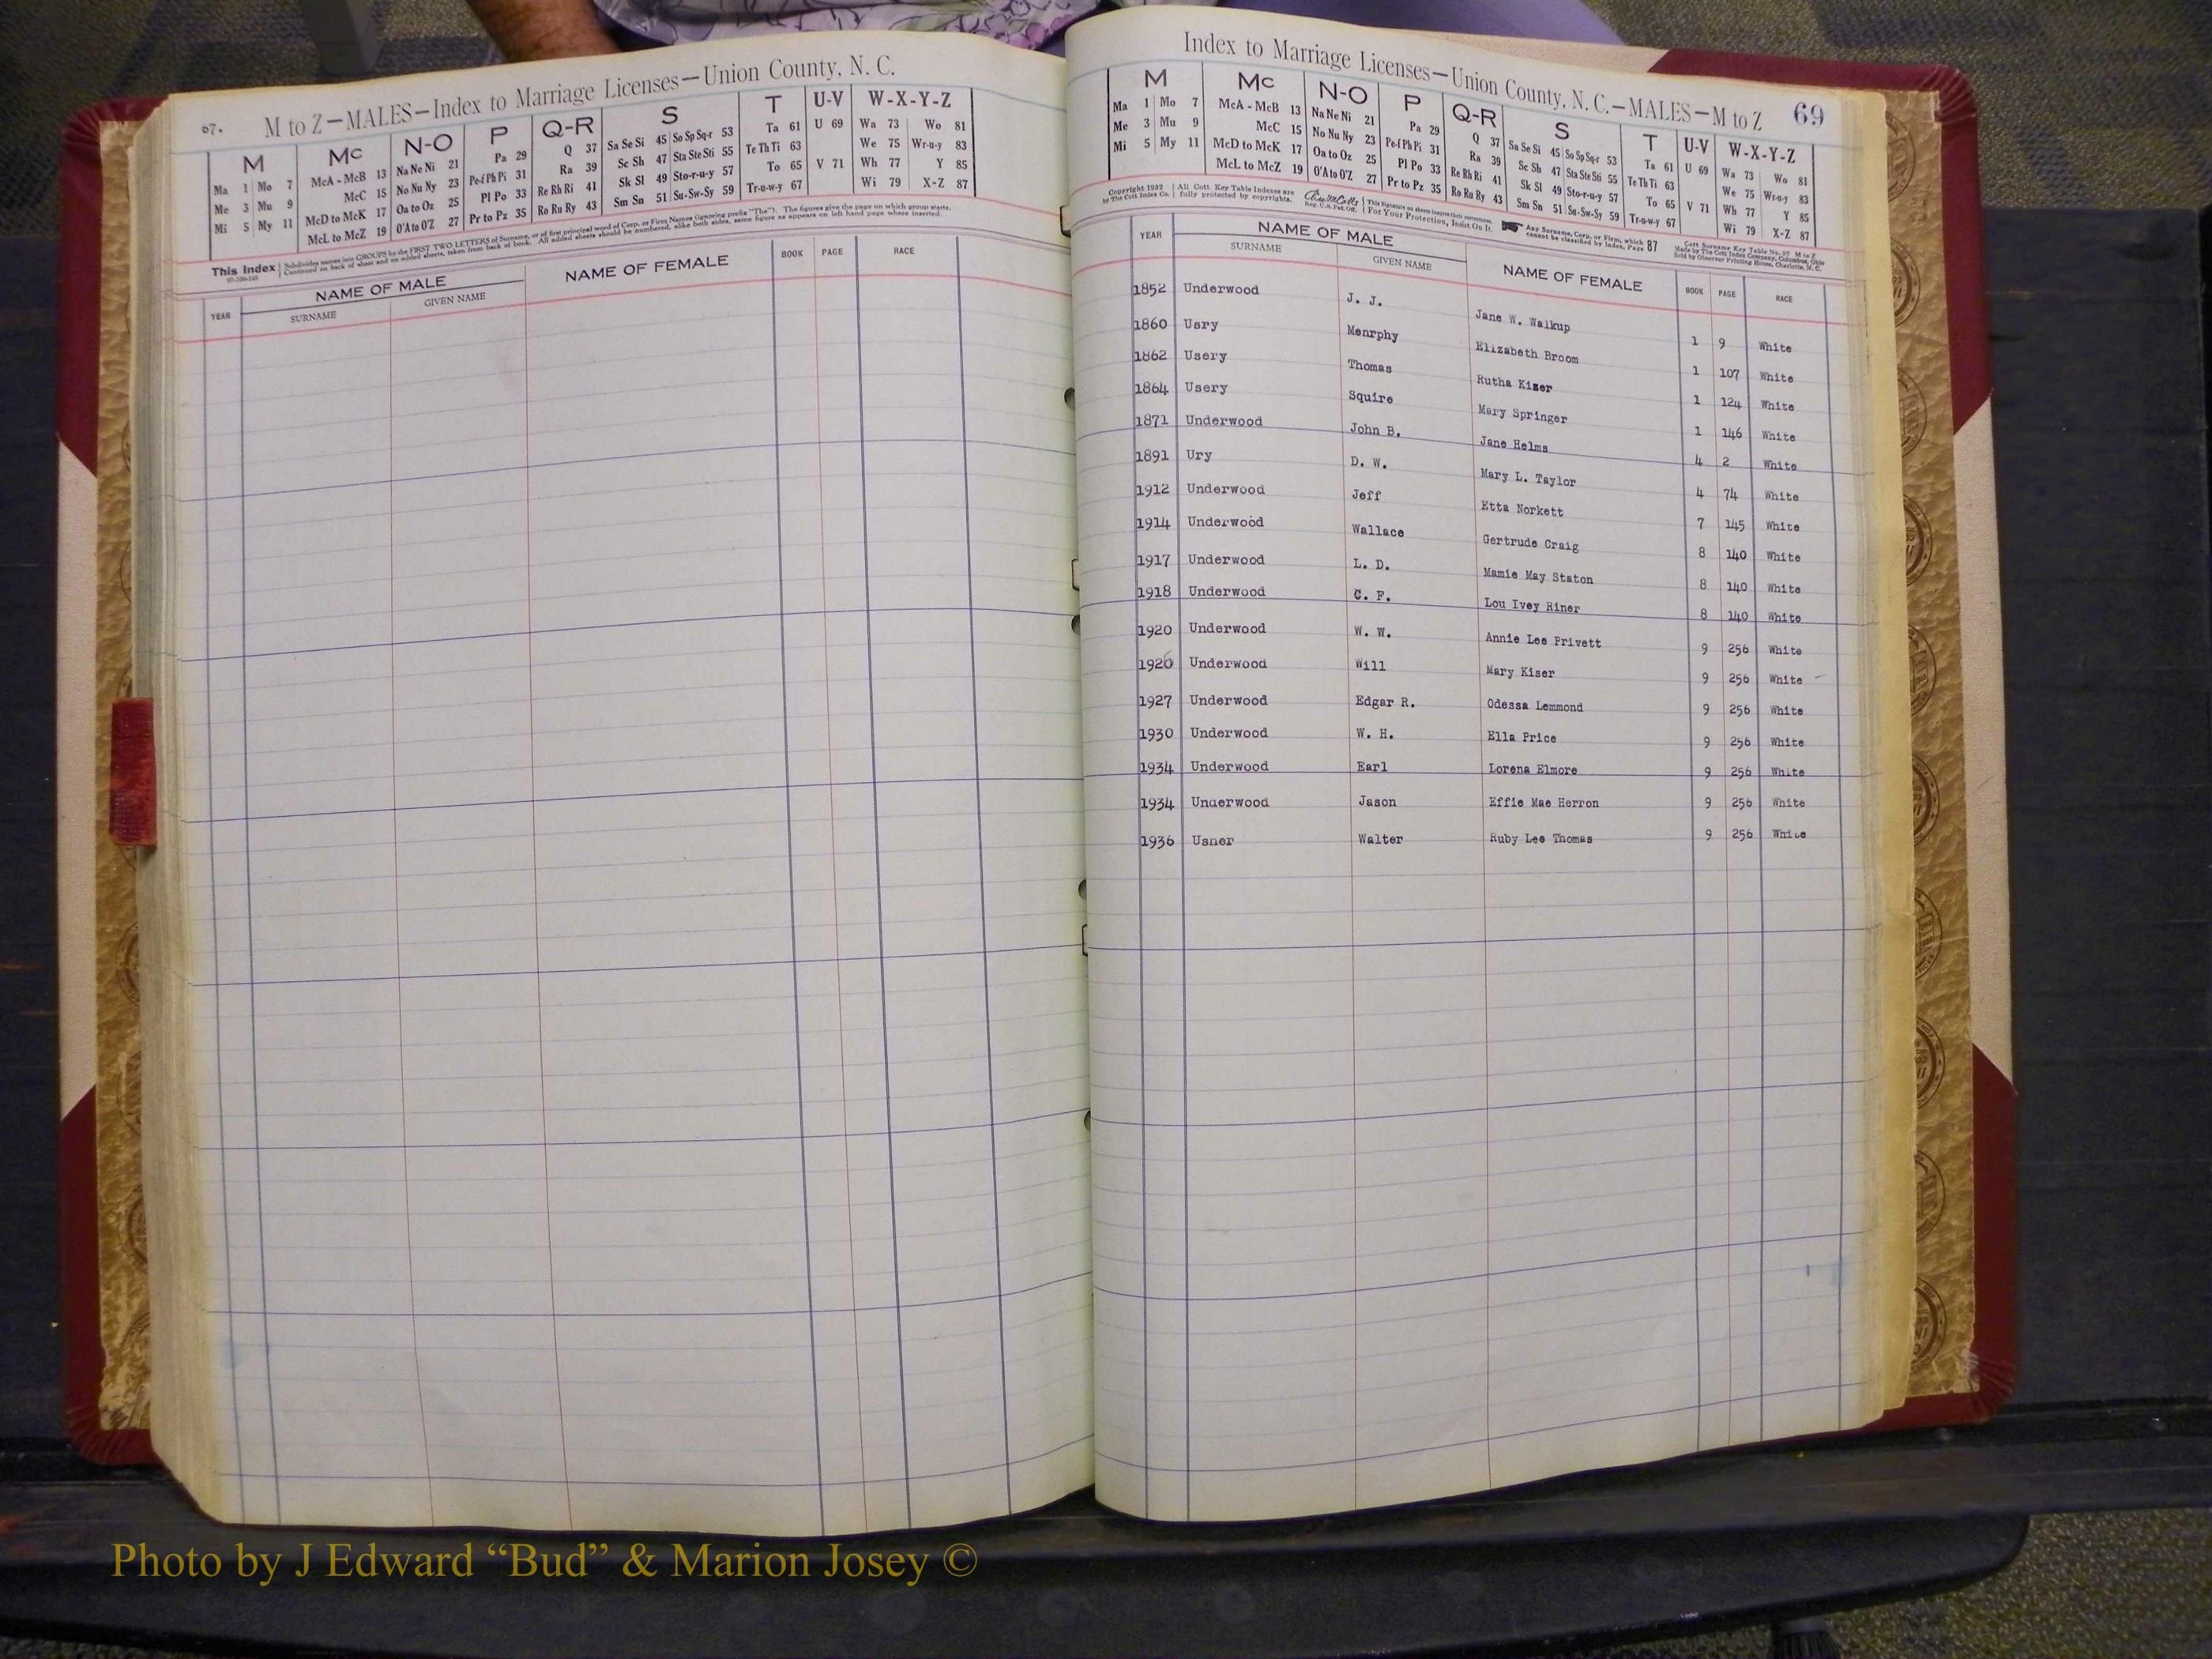 67.
M to Z—MALES—Index to Marriage Licenses—Union County, N. C.
M Mc N-O P Q-R S T U-V W-X-Y-Z
Ma 1 Mo 7 McA - McB 13 Na Ne Ni 21 Pa 29 Q 37 Sa Se Si 45 So Sp Sq-r 53 Ta 61 U 69 Wa 73 Wo 81
Me 3 Mu 9 McC 15 No Nu Ny 23 Pe-f Ph Pi 31 Ra 39 Sc Sh 47 Sta Ste Sti 55 Te Th Ti 63 We 75 Wr-u-y 83
Mi 5 My 11 McD to McK 17 Oa to Oz 25 Pl Po 33 Re Rh Ri 41 Sk Sl 49 Sto-r-u-y 57 To 65 V 71 Wh 77 Y 85
McL to McZ 19 O'A to O'Z 27 Pr to Pz 35 Ro Ru Ry 43 Sm Sn 51 Su-Sw-Sy 59 Tr-u-w-y 67 Wi 79 X-Z 87
This Index Subdivides names into GROUPS by the FIRST TWO LETTERS of Surname, or of first principal word of Corp. or Firm Names (ignoring prefix "The"). The figures give the page on which group starts.
Continued on back of sheet and on added sheets, taken from back of book. All added sheets should be numbered, alike both sides, same figure as appears on left hand page where inserted.
YEAR NAME OF MALE NAME OF FEMALE BOOK PAGE RACE
SURNAME GIVEN NAME
Index to Marriage Licenses—Union County, N. C.—MALES—M to Z 69
M Mc N-O P Q-R S T U-V W-X-Y-Z
Ma 1 Mo 7 McA - McB 13 Na Ne Ni 21 Pa 29 Q 37 Sa Se Si 45 So Sp Sq-r 53 Ta 61 U 69 Wa 73 Wo 81
Me 3 Mu 9 McC 15 No Nu Ny 23 Pe-f Ph Pi 31 Ra 39 Sc Sh 47 Sta Ste Sti 55 Te Th Ti 63 We 75 Wr-u-y 83
Mi 5 My 11 McD to McK 17 Oa to Oz 25 Pl Po 33 Re Rh Ri 41 Sk Sl 49 Sto-r-u-y 57 To 65 V 71 Wh 77 Y 85
McL to McZ 19 O'A to O'Z 27 Pr to Pz 35 Ro Ru Ry 43 Sm Sn 51 Su-Sw-Sy 59 Tr-u-w-y 67 Wi 79 X-Z 87
Copyright 1932 All Cott Key Table Indexes are This Signature on sheets insures their correctness. Any Surname, Corp. or Firm, which 87 Cott Surname Key Table No. 97 M to Z
by The Cott Index Co. fully protected by copyrights. Reg. U.S. Pat. Off. For Your Protection, Insist On It. cannot be classified by Index, Page Made by The Cott Index Company, Columbus, Ohio
Sold by Observer Printing House, Charlotte, N. C.
YEAR NAME OF MALE NAME OF FEMALE BOOK PAGE RACE
SURNAME GIVEN NAME
1852 Underwood J. J. Jane W. Walkup 1 9 White
1860 Usry Menrphy Elizabeth Broom 1 107 White
1862 Usery Thomas Rutha Kizer 1 124 White
1864 Usery Squire Mary Springer 1 146 White
1871 Underwood John B. Jane Helms 4 2 White
1891 Ury D. W. Mary L. Taylor 4 74 White
1912 Underwood Jeff Etta Norkett 7 145 White
1914 Underwood Wallace Gertrude Craig 8 140 White
1917 Underwood L. D. Mamie May Staton 8 140 White
1918 Underwood C. F. Lou Ivey Riner 8 140 White
1920 Underwood W. W. Annie Lee Privett 9 256 White
1926 Underwood Will Mary Kiser 9 256 White
1927 Underwood Edgar R. Odessa Lemmond 9 256 White
1930 Underwood W. H. Ella Price 9 256 White
1934 Underwood Earl Lorena Elmore 9 256 White
1934 Underwood Jason Effie Mae Herron 9 256 White
1936 Usner Walter Ruby Lee Thomas 9 256 White
Photo by J Edward “Bud” & Marion Josey ©